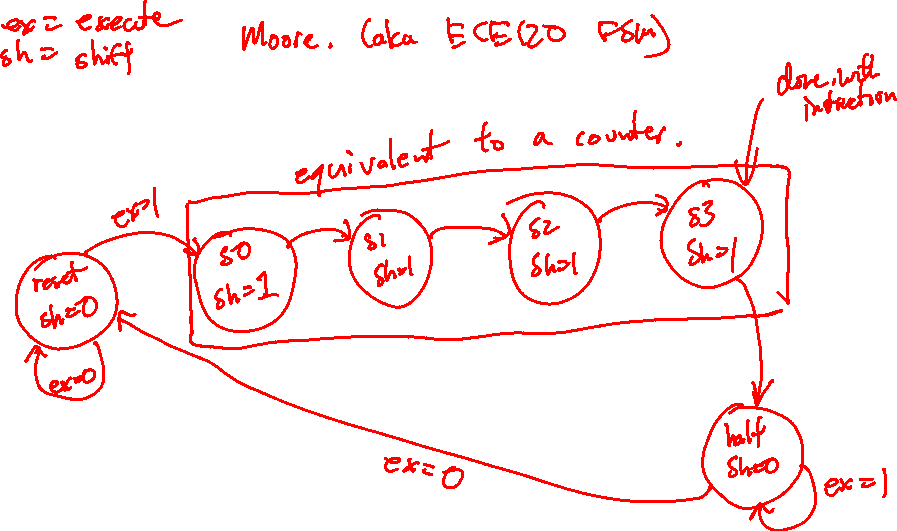 ex = execute
sh = shift
Moore. (aka ECE120 FSM)
done with
equivalent to a counter.
ex=1
reset
sh=0
ex=0
s0
sh=1
s1
sh=1
s2
sh=1
s3
sh=1
half
sh=0
ex=0
ex=1